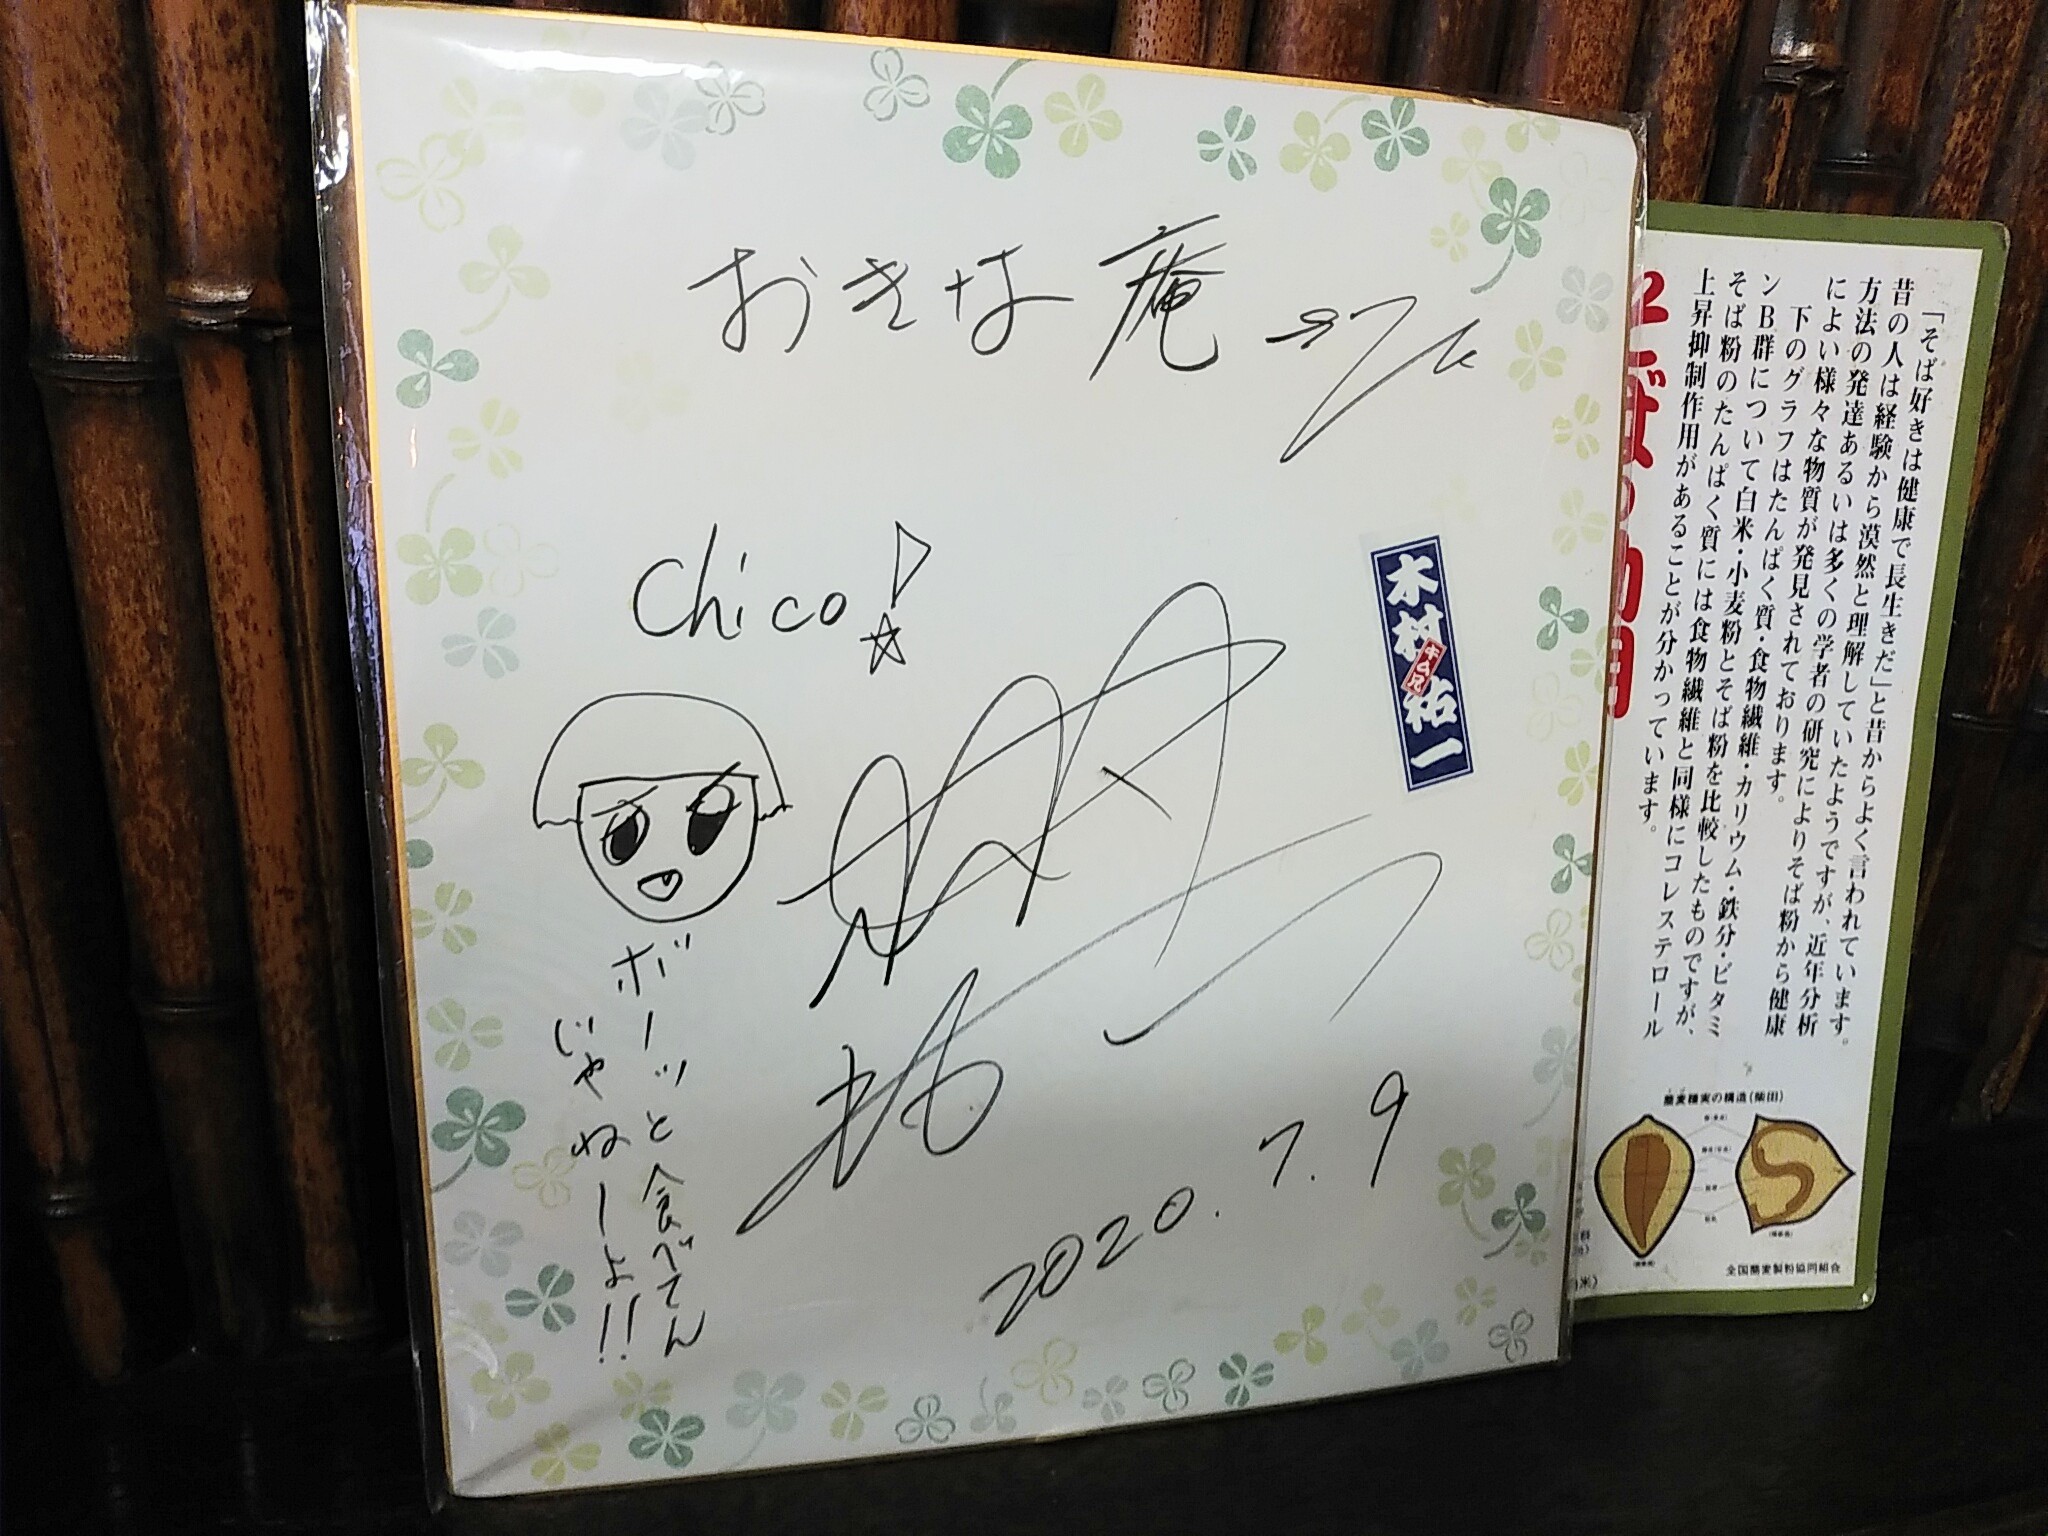 おきな庵さんへ
Chico!
木村祐一
キム兄
ボーッと食べてん
じゃねーよ!!
2020.7.9
「そば好きは健康で長生きだ」と昔からよく言われています。
昔の人は経験から漠然と理解していたようですが、近年分析
方法の発達あるいは多くの学者の研究によりそば粉から健康
によい様々な物質が発見されております。
下のグラフはたんぱく質・食物繊維・カリウム・鉄分・ビタミ
ンB群について白米・小麦粉とそば粉を比較したものですが、
そば粉のたんぱく質には食物繊維と同様にコレステロール
上昇抑制作用があることが分かっています。
蕎麦種実の構造(柴田)
全国蕎麦製粉協同組合